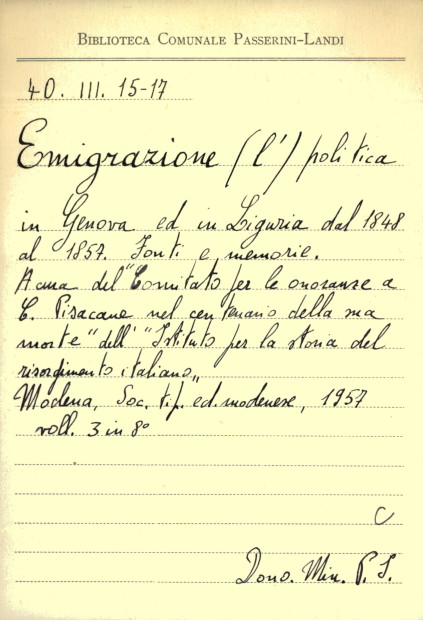 BIBLIOTECA COMUNALE PASSERINI-LANDI
40. III. 15-17
Emigrazione (l') politica
in Genova ed in Liguria dal 1848
al 1857. Fonti e memorie.
A cura del "Comitato per le onoranze a
C. Pisacane nel centenario della sua
morte" dell' "Istituto per la storia del
risorgimento italiano„
Modena, Soc. tip. ed. modenese, 1957
voll. 3 in 8°
C
Dono. Min. P. I.